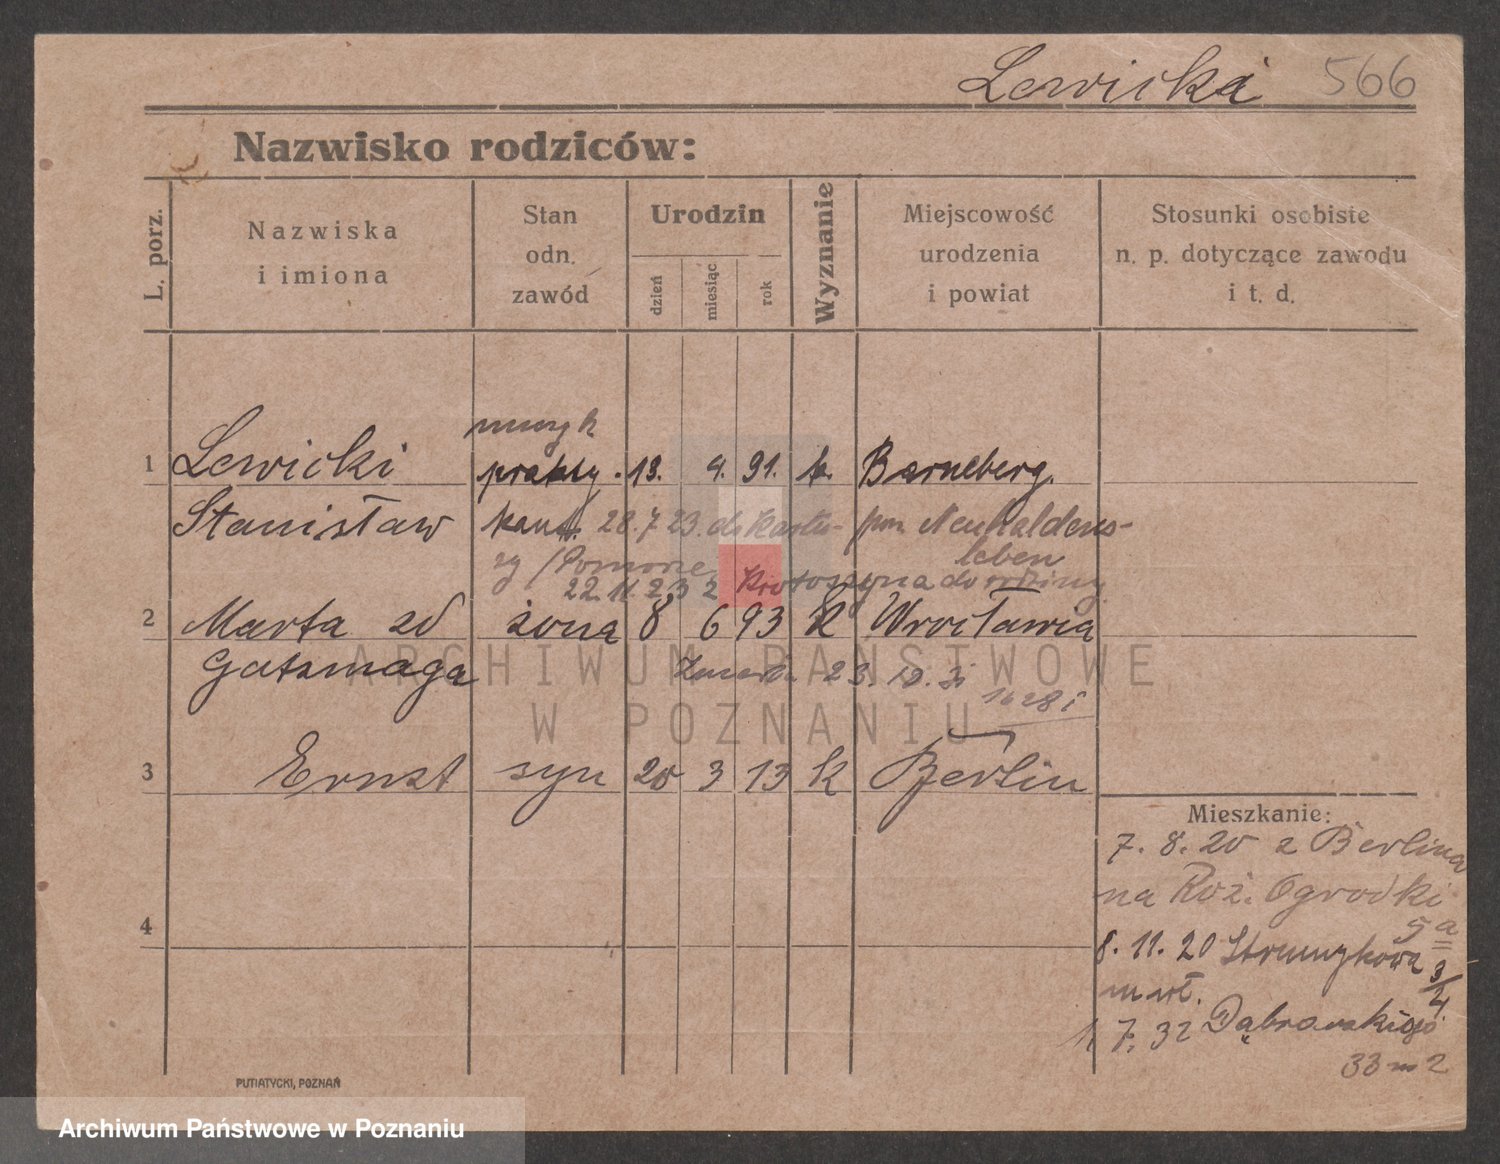 Lewicki 566
Nazwisko rodziców:
L. porz.
Nazwiska
i imiona
Stan
odn.
zawód
Urodzin
dzień
miesiąc
rok
Wyznanie
Miejscowość
urodzenia
i powiat
Stosunki osobiste
n. p. dotyczące zawodu
i t. d.
muzyk
1 Lewicki prakty. 13. 4. 91. k. Barneberg.
Stanisław kant. 28.7.23. do Kartu- pow. Neuhaldens-
zy /Pomorze leben
22.11.23 z Krotoszyna do rodziny
2 Marta zd żona 8 6 93 k Wrocławia
Gatzmaga 23.
3 Ernst syn 20 3 13 k Berlin
Mieszkanie:
7. 8. 20 z Berlina
na Roż. Ogrodki
5a
4
8. 11. 20 Strumykowa 3/4
m wł.
1. 7. 32 Dąbrowskiego
33 m 2
PUTIATYCKI, POZNAŃ
ARCHIWUM PAŃSTWOWE
W POZNANIU
Archiwum Państwowe w Poznaniu